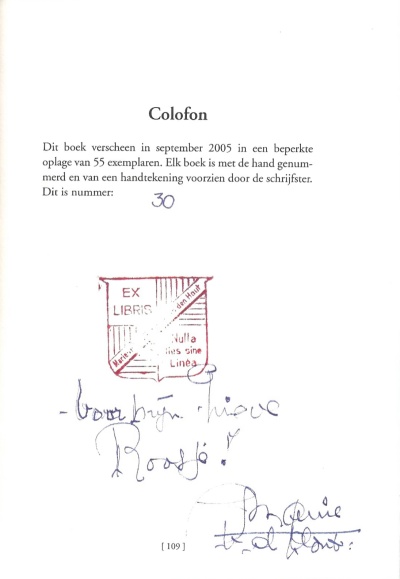 Colofon
Dit boek verscheen in september 2005 in een beperkte
oplage van 55 exemplaren. Elk boek is met de hand genum-
merd en van een handtekening voorzien door de schrijfster.
Dit is nummer:
30
EX
LIBRIS
den Hout
Nulla
dies sine
Linea
- Voor mijn lieve
Roosje!
[ 109 ]